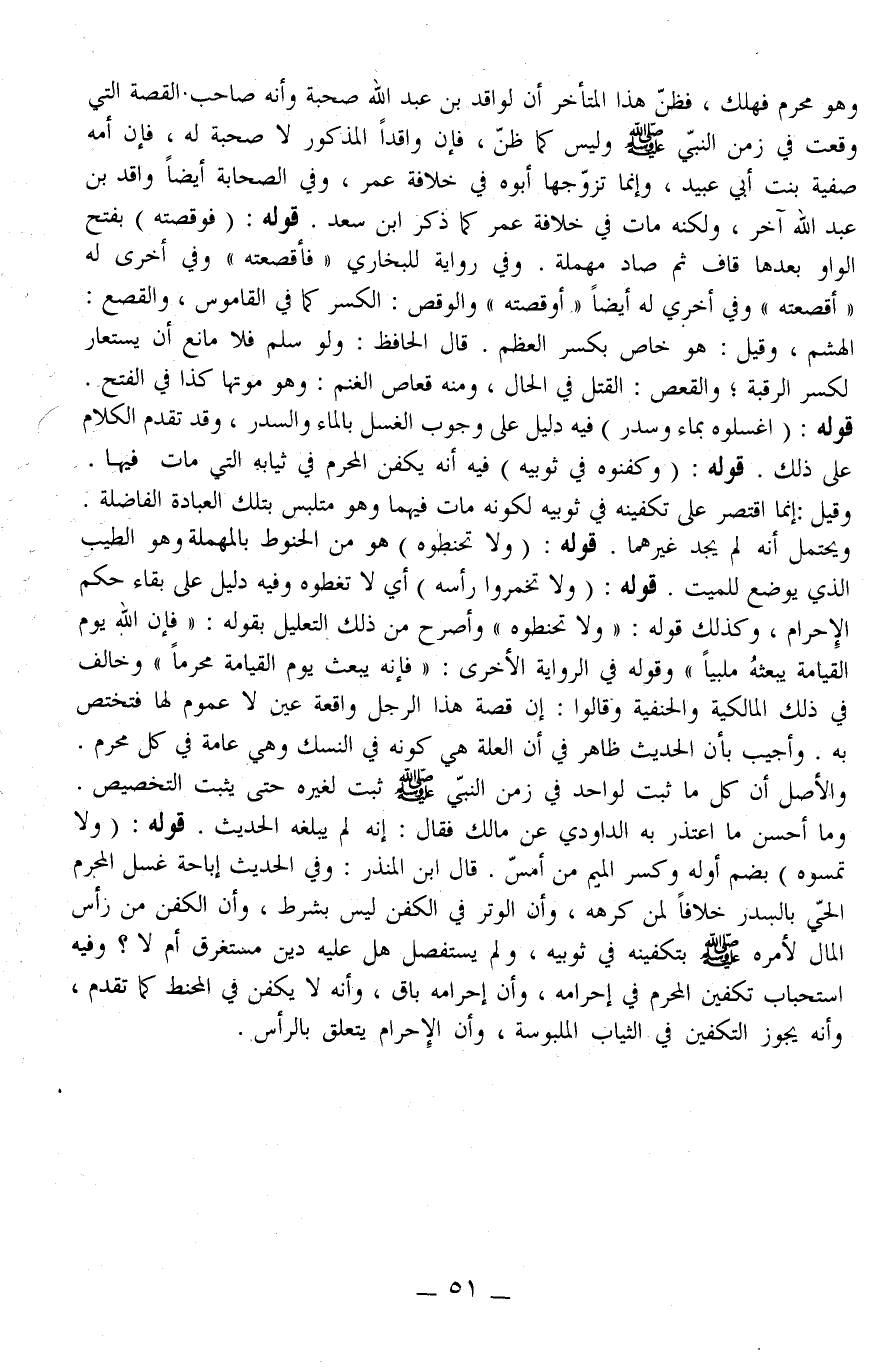 وهو محرم فهلك ، فظنّ هذا المتأخر أن لواقد بن عبد الله صحبة وأنه صاحب القصة التي
وقعت في زمن النبيّ ﷺ وليس كما ظنّ ، فإن واقداً المذكور لا صحبة له ، فإن أمه
صفية بنت أبي عبيد ، وإنما تزوّجها أبوه في خلافة عمر ، وفي الصحابة أيضاً واقد بن
عبد الله آخر ، ولكنه مات في خلافة عمر كما ذكر ابن سعد . قوله : ( فوقصته ) بفتح
الواو بعدها قاف ثم صاد مهملة . وفي رواية للبخاري « فأقصعته » وفي أخرى له
« أقصعته » وفي أخري له أيضاً « أوقصته » والوقص : الكسر كما في القاموس ، والقصع :
الهشم ، وقيل : هو خاص بكسر العظم . قال الحافظ : ولو سلم فلا مانع أن يستعار
لكسر الرقبة ؛ والقعص : القتل في الحال ، ومنه قعاص الغنم : وهو موتها كذا في الفتح .
قوله : ( اغسلوه بماء وسدر ) فيه دليل على وجوب الغسل بالماء والسدر ، وقد تقدم الكلام
على ذلك . قوله : ( وكفنوه في ثوبيه ) فيه أنه يكفن المحرم في ثيابه التي مات فيها .
وقيل :إنما اقتصر على تكفينه في ثوبيه لكونه مات فيهما وهو متلبس بتلك العبادة الفاضلة .
ويحتمل أنه لم يجد غيرهما . قوله : ( ولا تحنطوه ) هو من الحنوط بالمهملة وهو الطيب
الذي يوضع للميت . قوله : ( ولا تخمروا رأسه ) أي لا تغطوه وفيه دليل على بقاء حكم
الإحرام ، وكذلك قوله : « ولا تحنطوه » وأصرح من ذلك التعليل بقوله : « فإن الله يوم
القيامة يبعثهُ ملبياً » وقوله في الرواية الأخرى : « فإنه يبعث يوم القيامة محرماً » وخالف
في ذلك المالكية والحنفية وقالوا : إن قصة هذا الرجل واقعة عين لا عموم لها فتختص
به . وأجيب بأن الحديث ظاهر في أن العلة هي كونه في النسك وهي عامة في كل محرم .
والأصل أن كل ما ثبت لواحد في زمن النبيّ ﷺ ثبت لغيره حتى يثبت التخصيص .
وما أحسن ما اعتذر به الداودي عن مالك فقال : إنه لم يبلغه الحديث . قوله : ( ولا
تمسوه ) بضم أوله وكسر الميم من أمسّ . قال ابن المنذر : وفي الحديث إباحة غسل المحرم
الحيّ بالسدر خلافاً لمن كرهه ، وأن الوتر في الكفن ليس بشرط ، وأن الكفن من رأس
المال لأمره ﷺ بتكفينه في ثوبيه ، ولم يستفصل هل عليه دين مستغرق أم لا ؟ وفيه
استحباب تكفين المحرم في إحرامه ، وأن إحرامه باق ، وأنه لا يكفن في المحنط كما تقدم ،
وأنه يجوز التكفين في الثياب الملبوسة ، وأن الإحرام يتعلق بالرأس .
_ ٥١ _